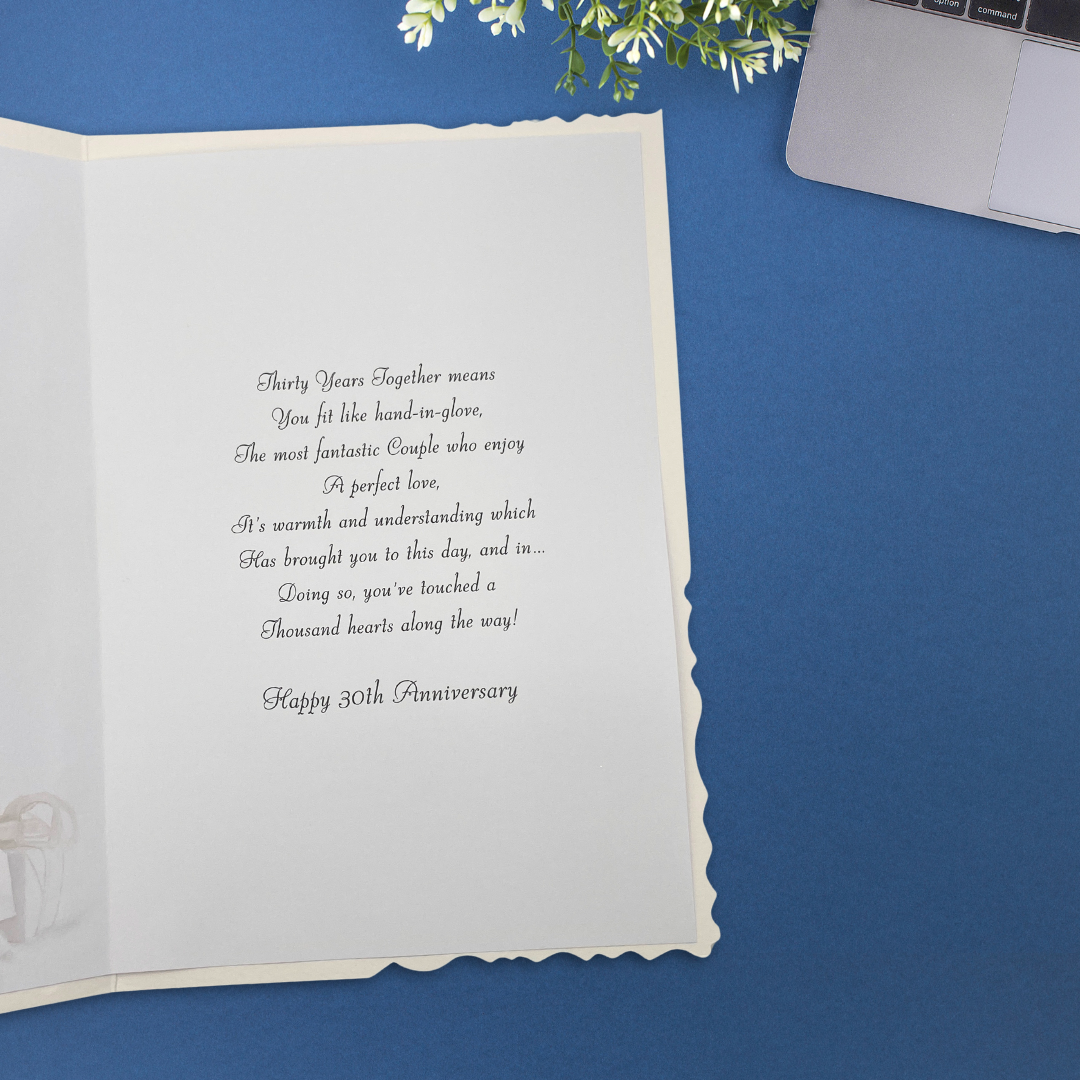 option
command
Thirty Years Together means
You fit like hand-in-glove,
The most fantastic Couple who enjoy
A perfect love,
It's warmth and understanding which
Has brought you to this day, and in...
Doing so, you've touched a
Thousand hearts along the way!
Happy 30th Anniversary